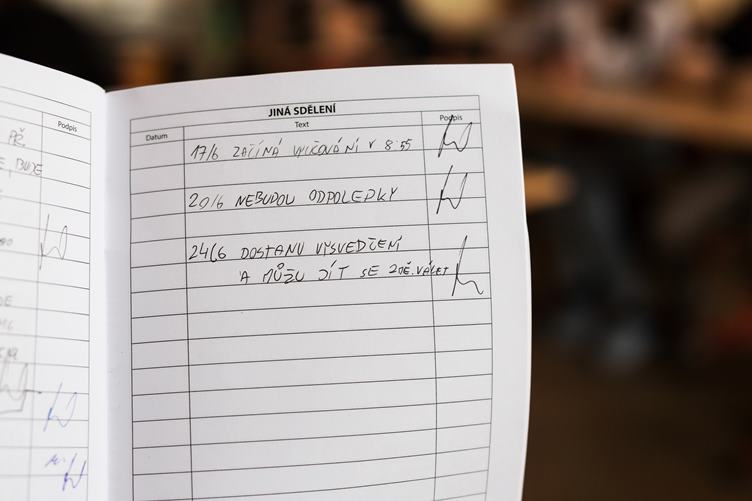 Podpis
PĚ,
, BUDE
JINÁ SDĚLENÍ
Datum Text Podpis
17/6 ZAČÍNÁ VYUČOVÁNÍ V 8:55
20/6 NEBUDOU ODPOLEDKY
24/6 DOSTANU VYSVEDČENÍ
A MŮŽU JÍT SE